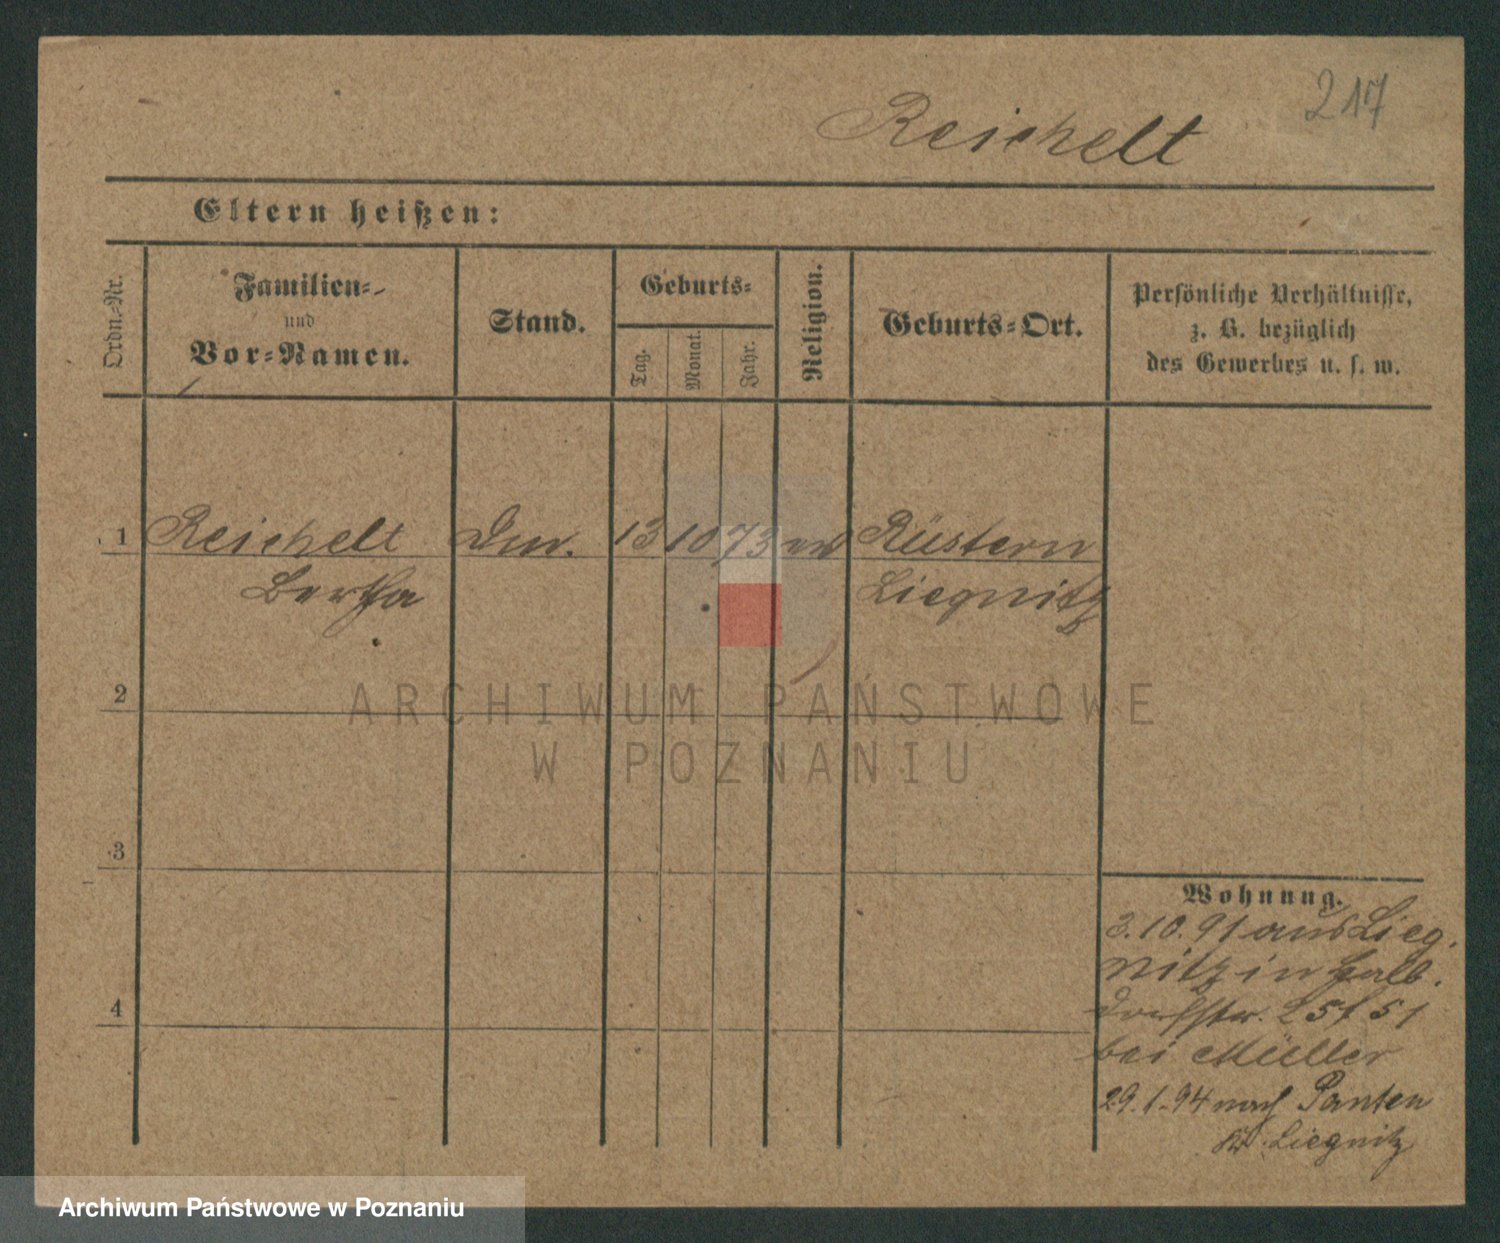 217
Reichelt
Eltern heißen:
Ordn.-Nr.
Familien-
und
Vor-Namen.
Stand.
Geburts-
Tag.
Monat.
Jahr.
Religion.
Geburts-Ort.
Persönliche Verhältnisse,
z. B. bezüglich
des Gewerbes u. s. w.
1 Reichelt 13 10 73 Rüstern
Bertha Liegnitz
2
ARCHIWUM PAŃSTWOWE
W POZNANIU
3
4
Wohnung.
3.10.91 aus Lieg.
nitz in Halb.
dorfstr. 51
bei Müller
29.1.94 nach Panten
Kr. Liegnitz
Archiwum Państwowe w Poznaniu